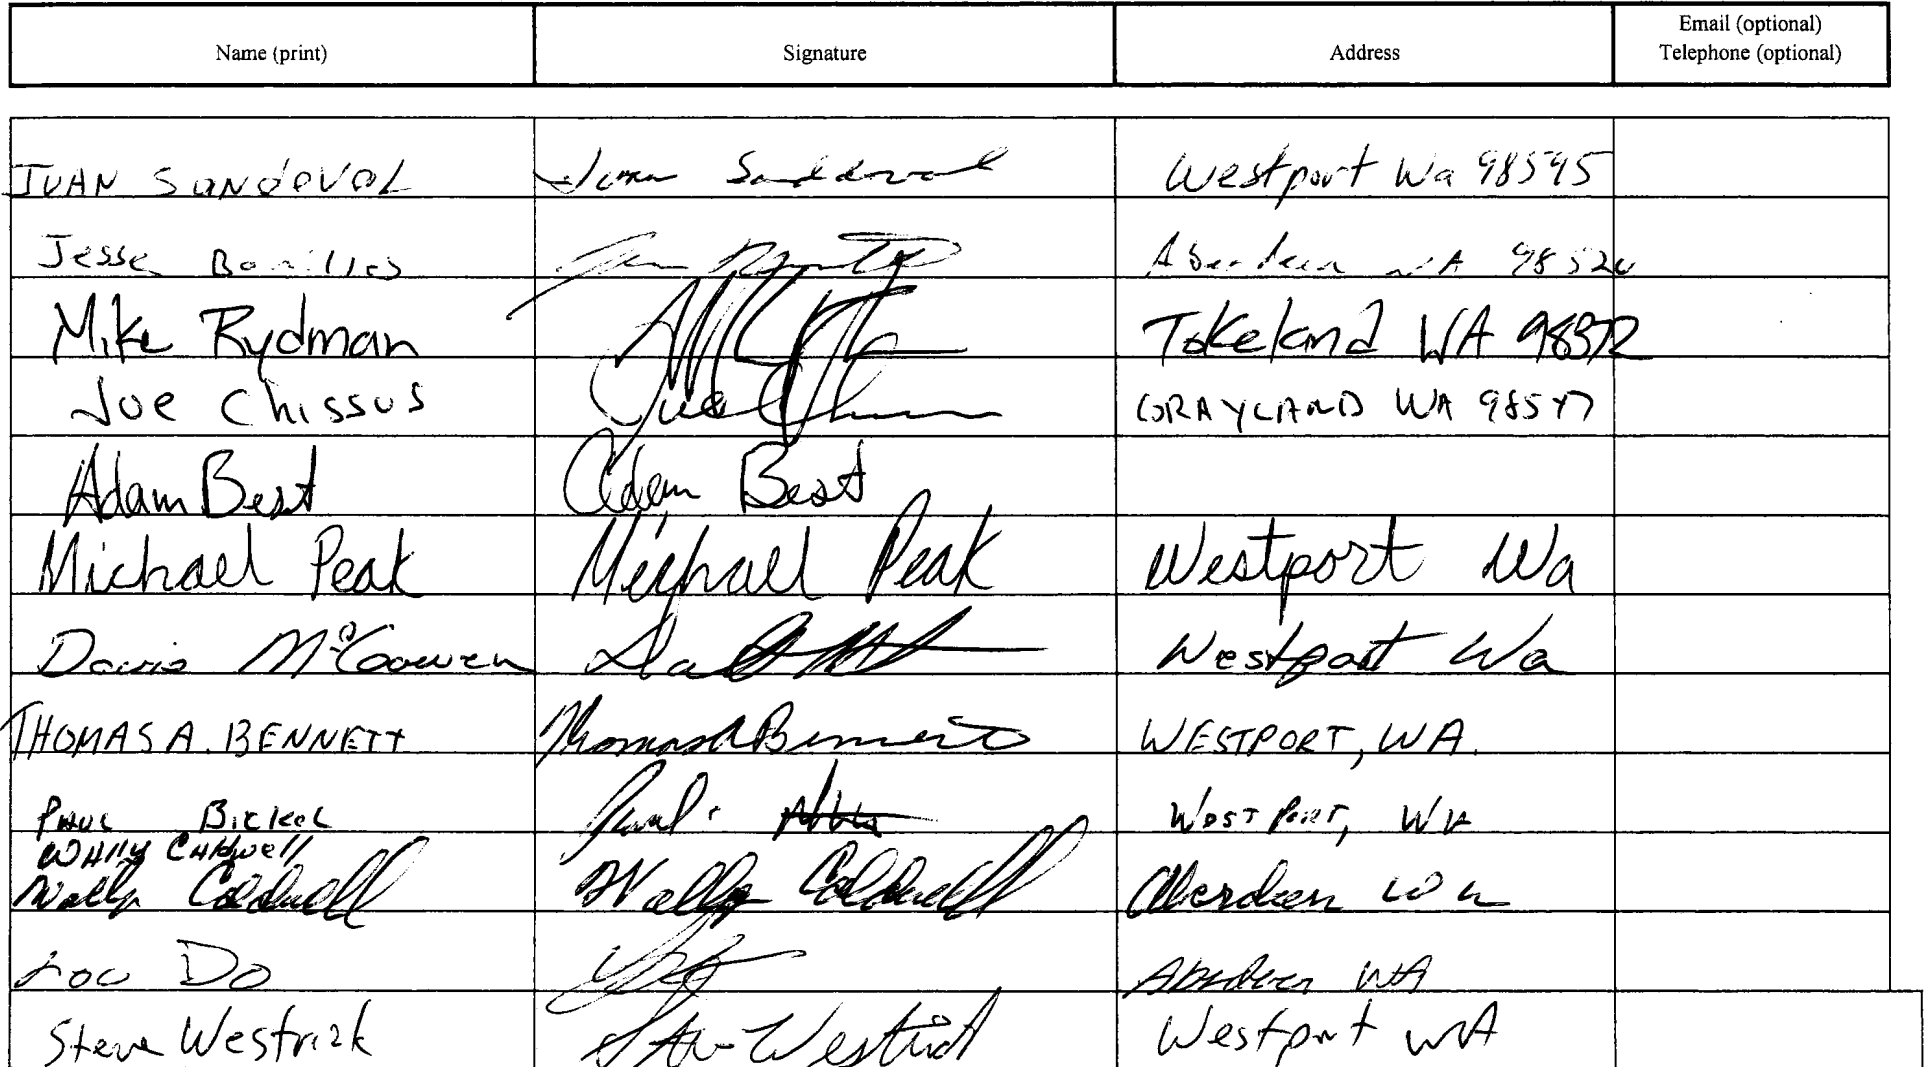 Name (print) Signature Address Email (optional)
Telephone (optional)
JUAN SANDOVAL Juan Sandoval Westport Wa 98595
Jesse Aberdeen WA 98520
Mike Rydman Tokeland WA
Joe Chissus Joe GRAYLAND WA 98547
Adam Best Adam Best
Michael Peak Michael Peak Westport Wa
McGowen Westport Wa
THOMAS A. BENNETT Thomas A Bennett WESTPORT, WA.
PAUL Bickel Paul WestPort, WA
WAlly CAldwell
Wally Caldwell Wally Caldwell Aberdeen Wa
Do Aberdeen WA
Steve Westrick Steve Westrick Westport WA